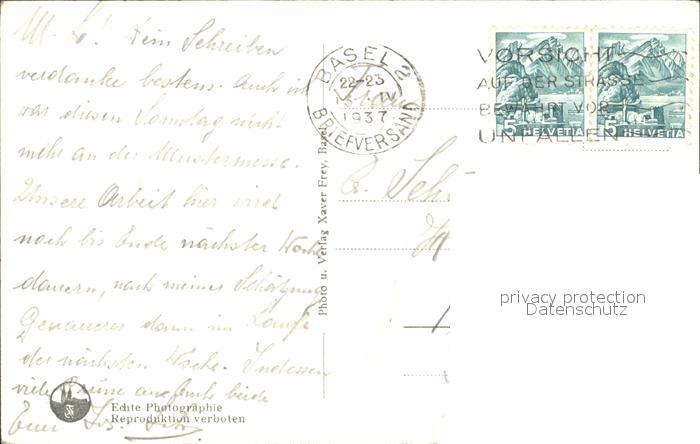 M. L.! Dein Schreiben
verdanke bestens. Auch ich
war diesen Samstag nicht
mehr an der Mustermesse.
Unsere Arbeit hier wird
noch bis Ende nächster Woche
dauern, nach meiner Schätzung
Genaueres dann im Laufe
der nächsten Woche. Indessen
viele Grüsse auf Euch beide
Euer
Echte Photographie
Reproduktion verboten
Photo u. Verlag Xaver Frey, Basel
BASEL 2
22-23
IV
1937
BRIEFVERSAND
VORSICHT
AUF DER STRASSE
BEWAHRT VOR
UNFÄLLEN
5 HELVETIA
5 HELVETIA
privacy protection
Datenschutz